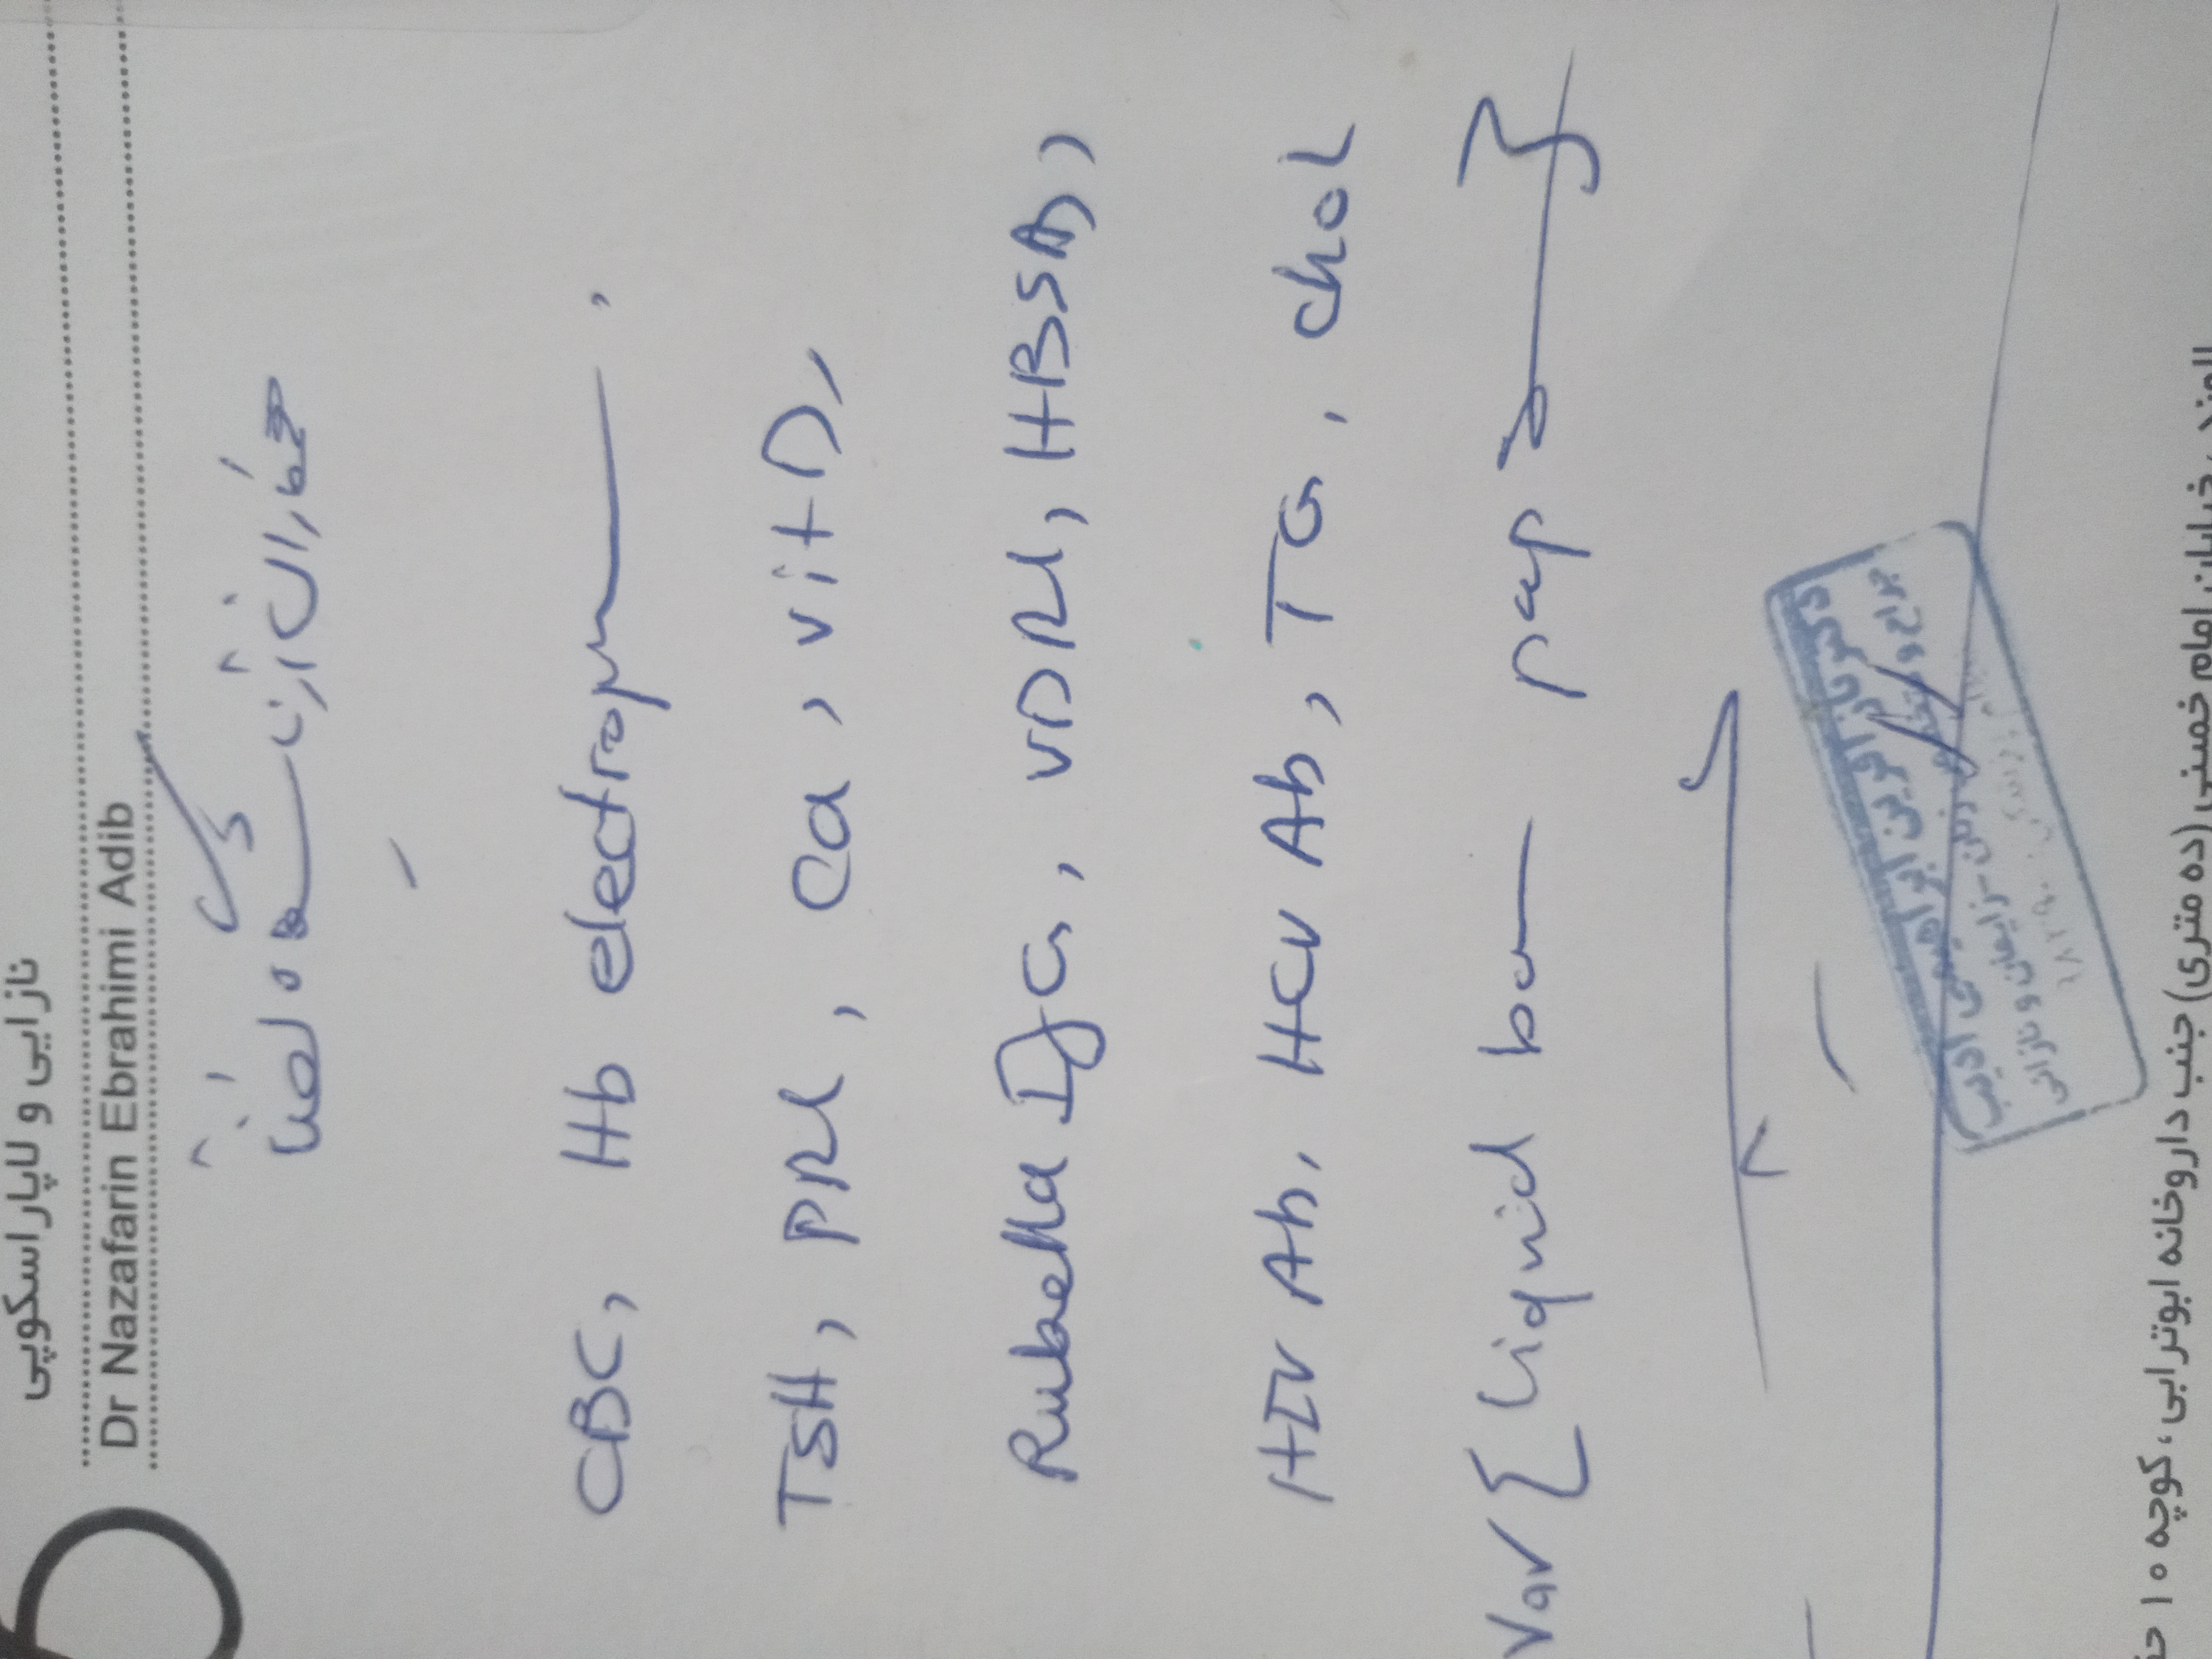 نازایی و لاپاراسکوپی
Dr Nazafarin Ebrahimi Adib
CBC, Hb electrop
TSH, PRL, Ca, vit D,
Rubella IgG, VDRL, HBSAg,
HIV Ab, HCV Ab, TG, chol
{ Liquid base pap }
دکتر نازآفرین ابراهیمی ادیب
جراح و متخصص زنان - زایمان و نازایی
خیابان امام خمینی (ده متری) جنب داروخانه ابوترابی، کوچه ۱۰